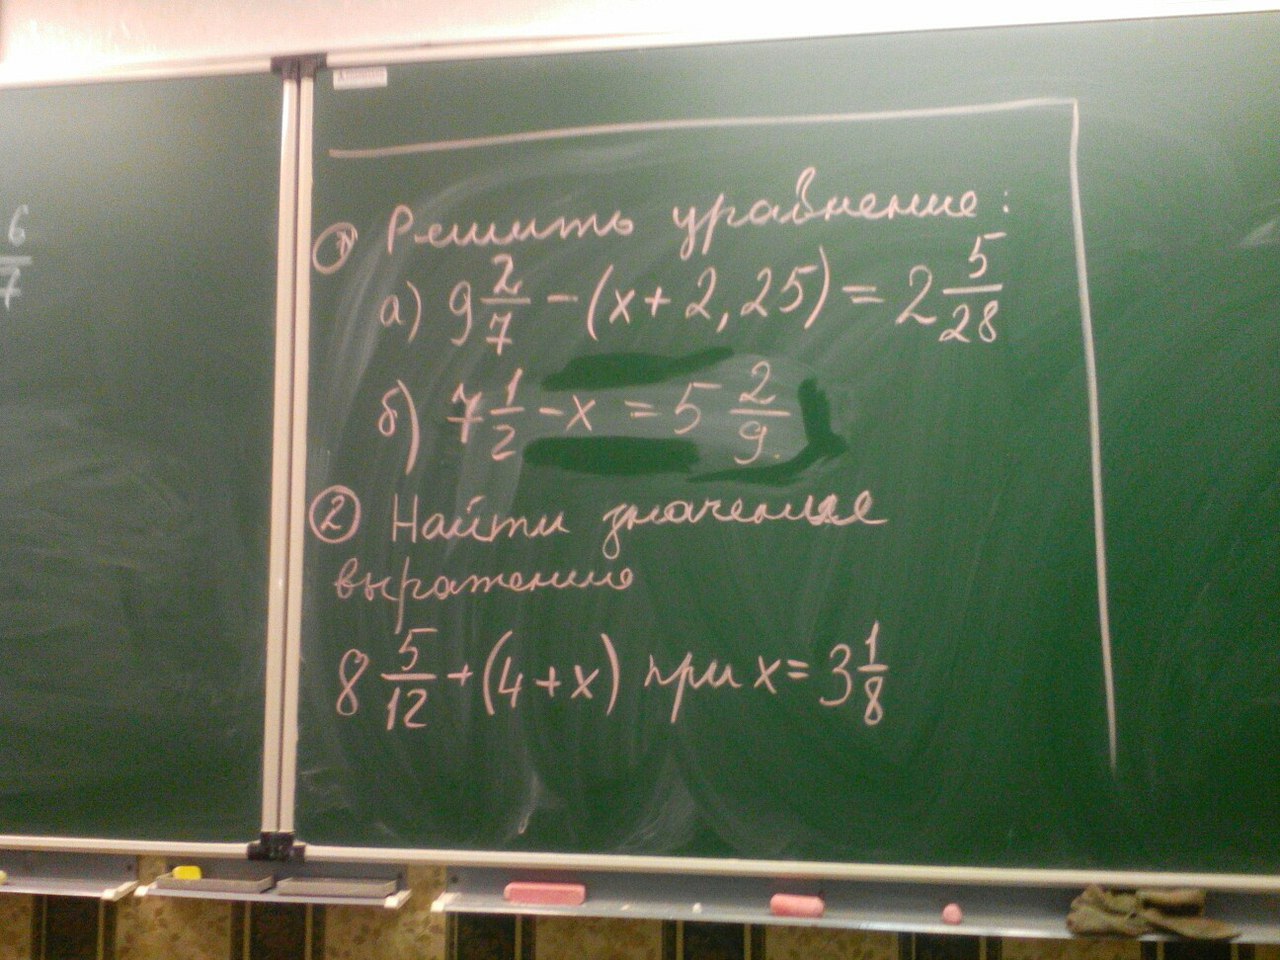 6/7
① Решить уравнение:
а) 9 2/7 - (x + 2,25) = 2 5/28
б) 7 1/2 - x = 5 2/9.
② Найти значение
выражение
8 5/12 + (4 + x) при x = 3 1/8